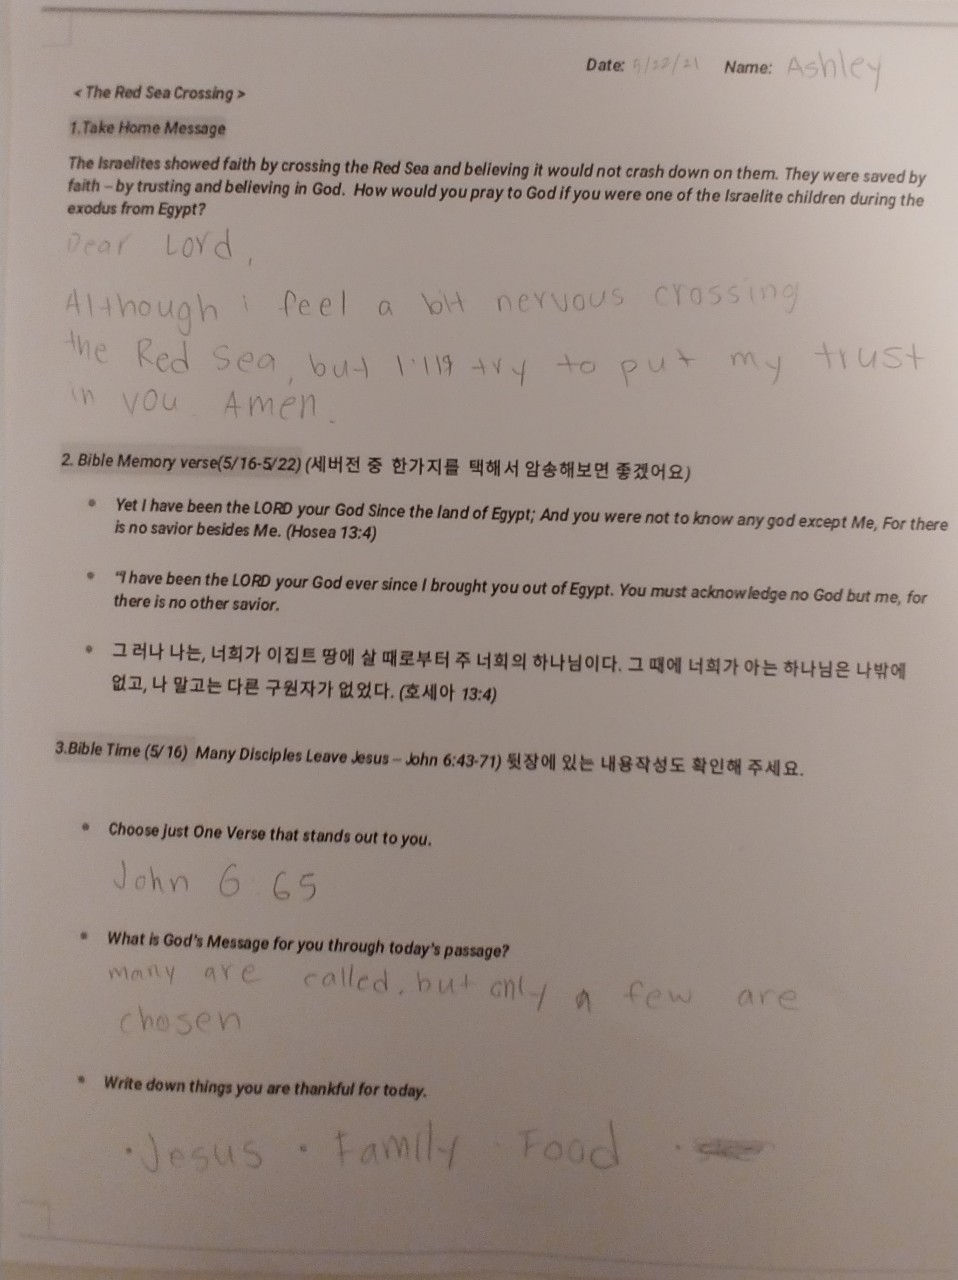 Date: 5/22/21 Name: Ashley
< The Red Sea Crossing >
1.Take Home Message
The Israelites showed faith by crossing the Red Sea and believing it would not crash down on them. They were saved by
faith – by trusting and believing in God. How would you pray to God if you were one of the Israelite children during the
exodus from Egypt?
Dear Lord,
Although i feel a bit nervous crossing
the Red Sea, but I'll try to put my trust
in you. Amen.
2. Bible Memory verse(5/16-5/22) (세버전 중 한가지를 택해서 암송해보면 좋겠어요)
• Yet I have been the LORD your God Since the land of Egypt; And you were not to know any god except Me, For there
is no savior besides Me. (Hosea 13:4)
• “I have been the LORD your God ever since I brought you out of Egypt. You must acknowledge no God but me, for
there is no other savior.
• 그러나 나는, 너희가 이집트 땅에 살 때로부터 주 너희의 하나님이다. 그 때에 너희가 아는 하나님은 나밖에
없고, 나 말고는 다른 구원자가 없었다. (호세아 13:4)
3.Bible Time (5/16) Many Disciples Leave Jesus – John 6:43-71) 뒷장에 있는 내용작성도 확인해 주세요.
• Choose just One Verse that stands out to you.
John 6:65
• What is God's Message for you through today's passage?
many are called, but only a few are
chosen
• Write down things you are thankful for today.
• Jesus • Family • Food •